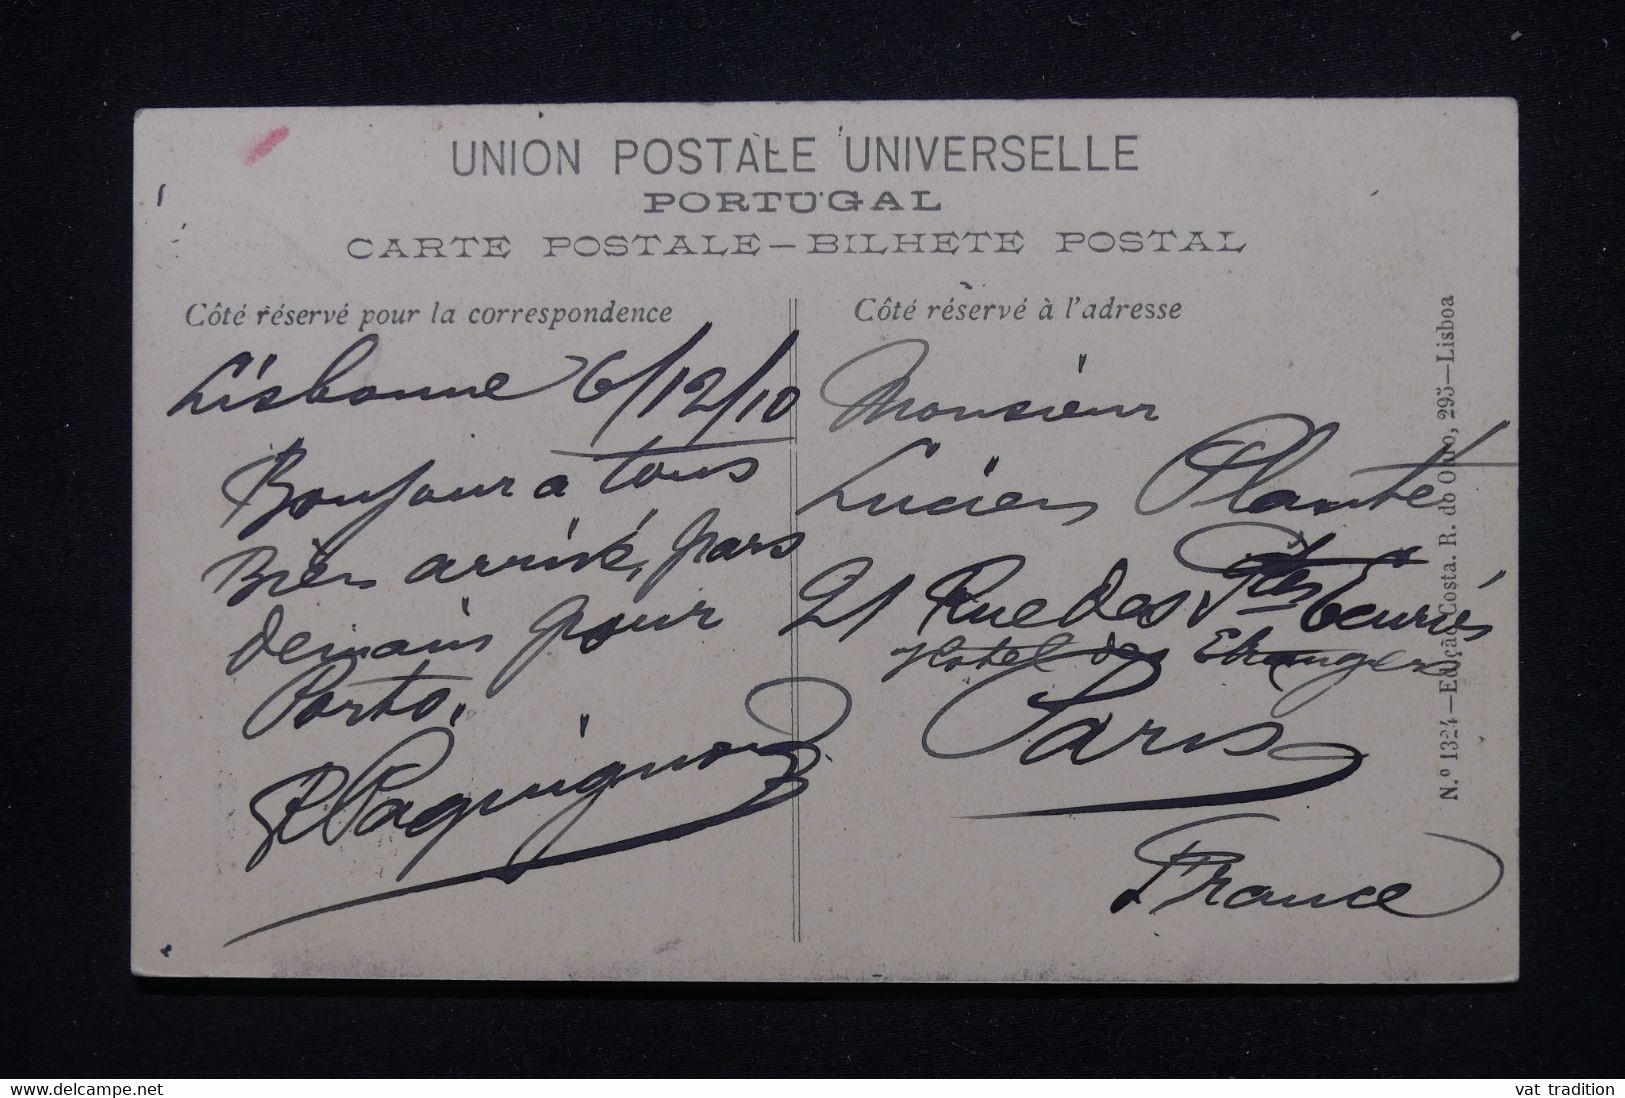 UNION POSTALE UNIVERSELLE
PORTUGAL
CARTE POSTALE — BILHETE POSTAL
Côté réservé pour la correspondence
Lisbonne 6/12/10
Bonjour a tous
Bien arrivé, pars
demain pour
Porto.
Paquignon
Côté réservé à l'adresse
Monsieur
Lucien Planté
21 Rue des
Hotel des Etrangers
Paris
France
N.º 1324—Edição Costa. R. do Ouro, 295—Lisboa
delcampe.net
vat tradition